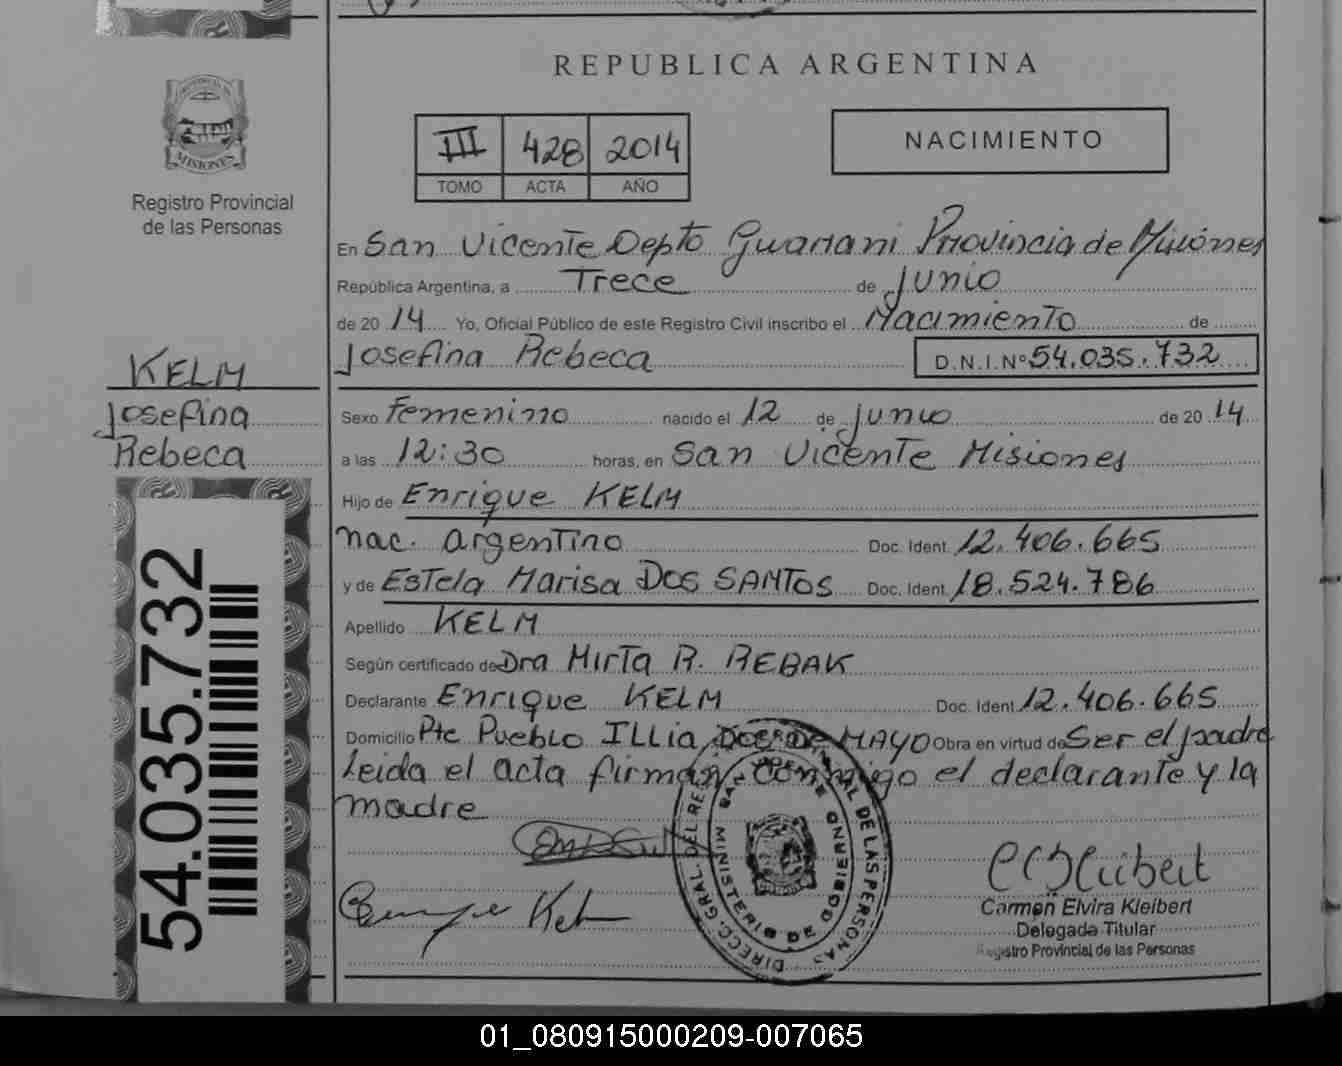 REPUBLICA ARGENTINA
III 428 2014
TOMO ACTA AÑO
NACIMIENTO
MISIONES
Registro Provincial
de las Personas
En San Vicente Depto Guarani Provincia de Misiones
República Argentina, a Trece de Junio
de 2014 Yo, Oficial Público de este Registro Civil inscribo el Nacimiento de
Josefina Rebeca D.N.I.Nº 54.035.732
KELM
Josefina
Rebeca
Sexo Femenino nacido el 12 de Junio de 2014
a las 12:30 horas, en San Vicente Misiones
Hijo de Enrique KELM
nac. argentino Doc. Ident. 12.406.665
y de Estela Marisa DOS SANTOS Doc. Ident. 18.524.786
Apellido KELM
Según certificado de Dra Mirta R. REBAK
Declarante Enrique KELM Doc. Ident. 12.406.665
Domicilio Pte Pueblo ILLia, Dos de MAYO Obra en virtud de Ser el padre
Leida el acta firman conmigo el declarante y la
madre
54.035.732
DIRECC. GRAL. DEL REG. DE LAS PERSONAS
MINISTERIO DE GOBIERNO
SAN VICENTE
Carmen Elvira Kleibert
Delegada Titular
Registro Provincial de las Personas
01_080915000209-007065